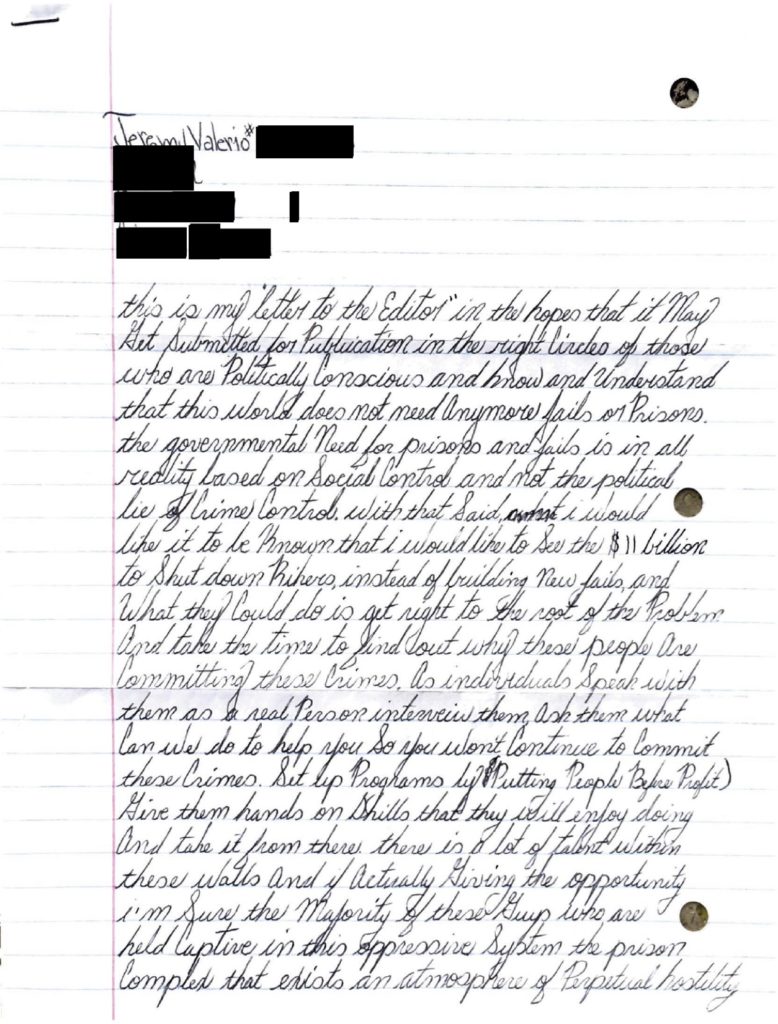 Jeremy Valerio #
this is my "letter to the Editor" in the hopes that it May
Get Submitted for Publucation in the right Circles of those
who are Politically Conscious and know and Understand
that this world does not need Anymore Jails or Prisons.
the governmental Need for prisons and jails is in all
reality based on Social Control and not the political
lie of Crime Control. with that Said, i would
like it to be Known that i would like to See the $11 billion
to Shut down Rikers, instead of building New jails, and
What they Could do is get right to the root of the Problem
And take the time to find out why these people Are
Committing these Crimes. As individuals Speak with
them as a real Person interveiw them, Ask them what
Can we do to help you So you wont Continue to Commit
these Crimes. Set up Programs by (Putting People Before Profit)
Give them hands on Skills that they will enjoy doing
And take it from there. there is a lot of talent within
these walls And if Actually Giving the opportunity
i'm Sure the Majority of these Guys who are
held Captive in this oppressive System the prison
Complex that exists an atmosphere of Perpetual hostility